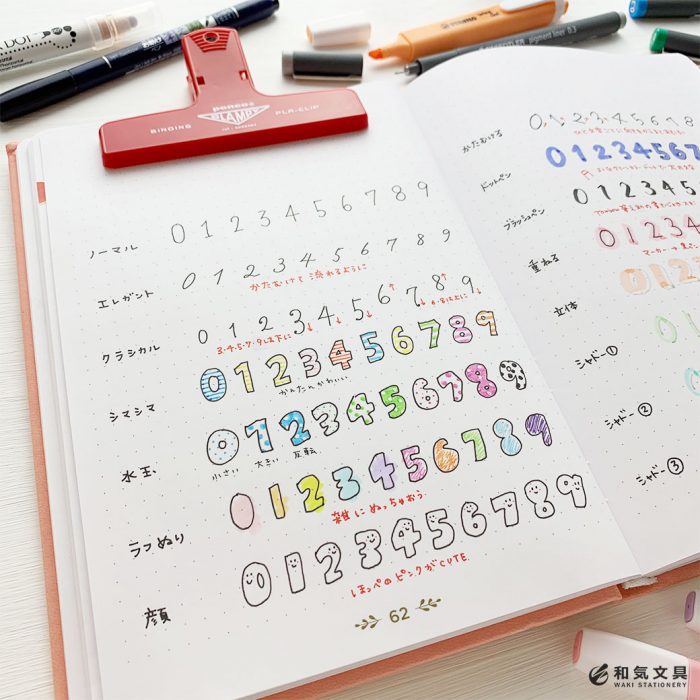 DOT
penco
PLAMPY
BINDING
PLA-CLIP
ノーマル 0 1 2 3 4 5 6 7 8 9
エレガント 0 1 2 3 4 5 6 7 8 9
かたむけて 流れるように
クラシカル 0 1 2 3 4 5 6 7 8 9
3・4・5・7・9は下に
6・8は上に
シマシマ 0 1 2 3 4 5 6 7 8 9
かんたんかわいい
水玉 0 1 2 3 4 5 6 7 8 9
小さい 大きい 反転
ラフぬり 0 1 2 3 4 5 6 7 8 9
雑にぬっちゃおう
顔 0 1 2 3 4 5 6 7 8 9
ほっぺのピンクがCUTE
62
かたむける 0 1 2 3 4 5 6 7 8
ドットペン 0 1 2 3 4 5 6 7
ブラッシュペン 0 1 2 3 4 5 6
重ねる 0 1 2 3 4
立体 0 1 2 3
シャドー① 0 1
シャドー②
シャドー③
STABILO
pigment liner 0.3
和気文具
WAKI STATIONERY